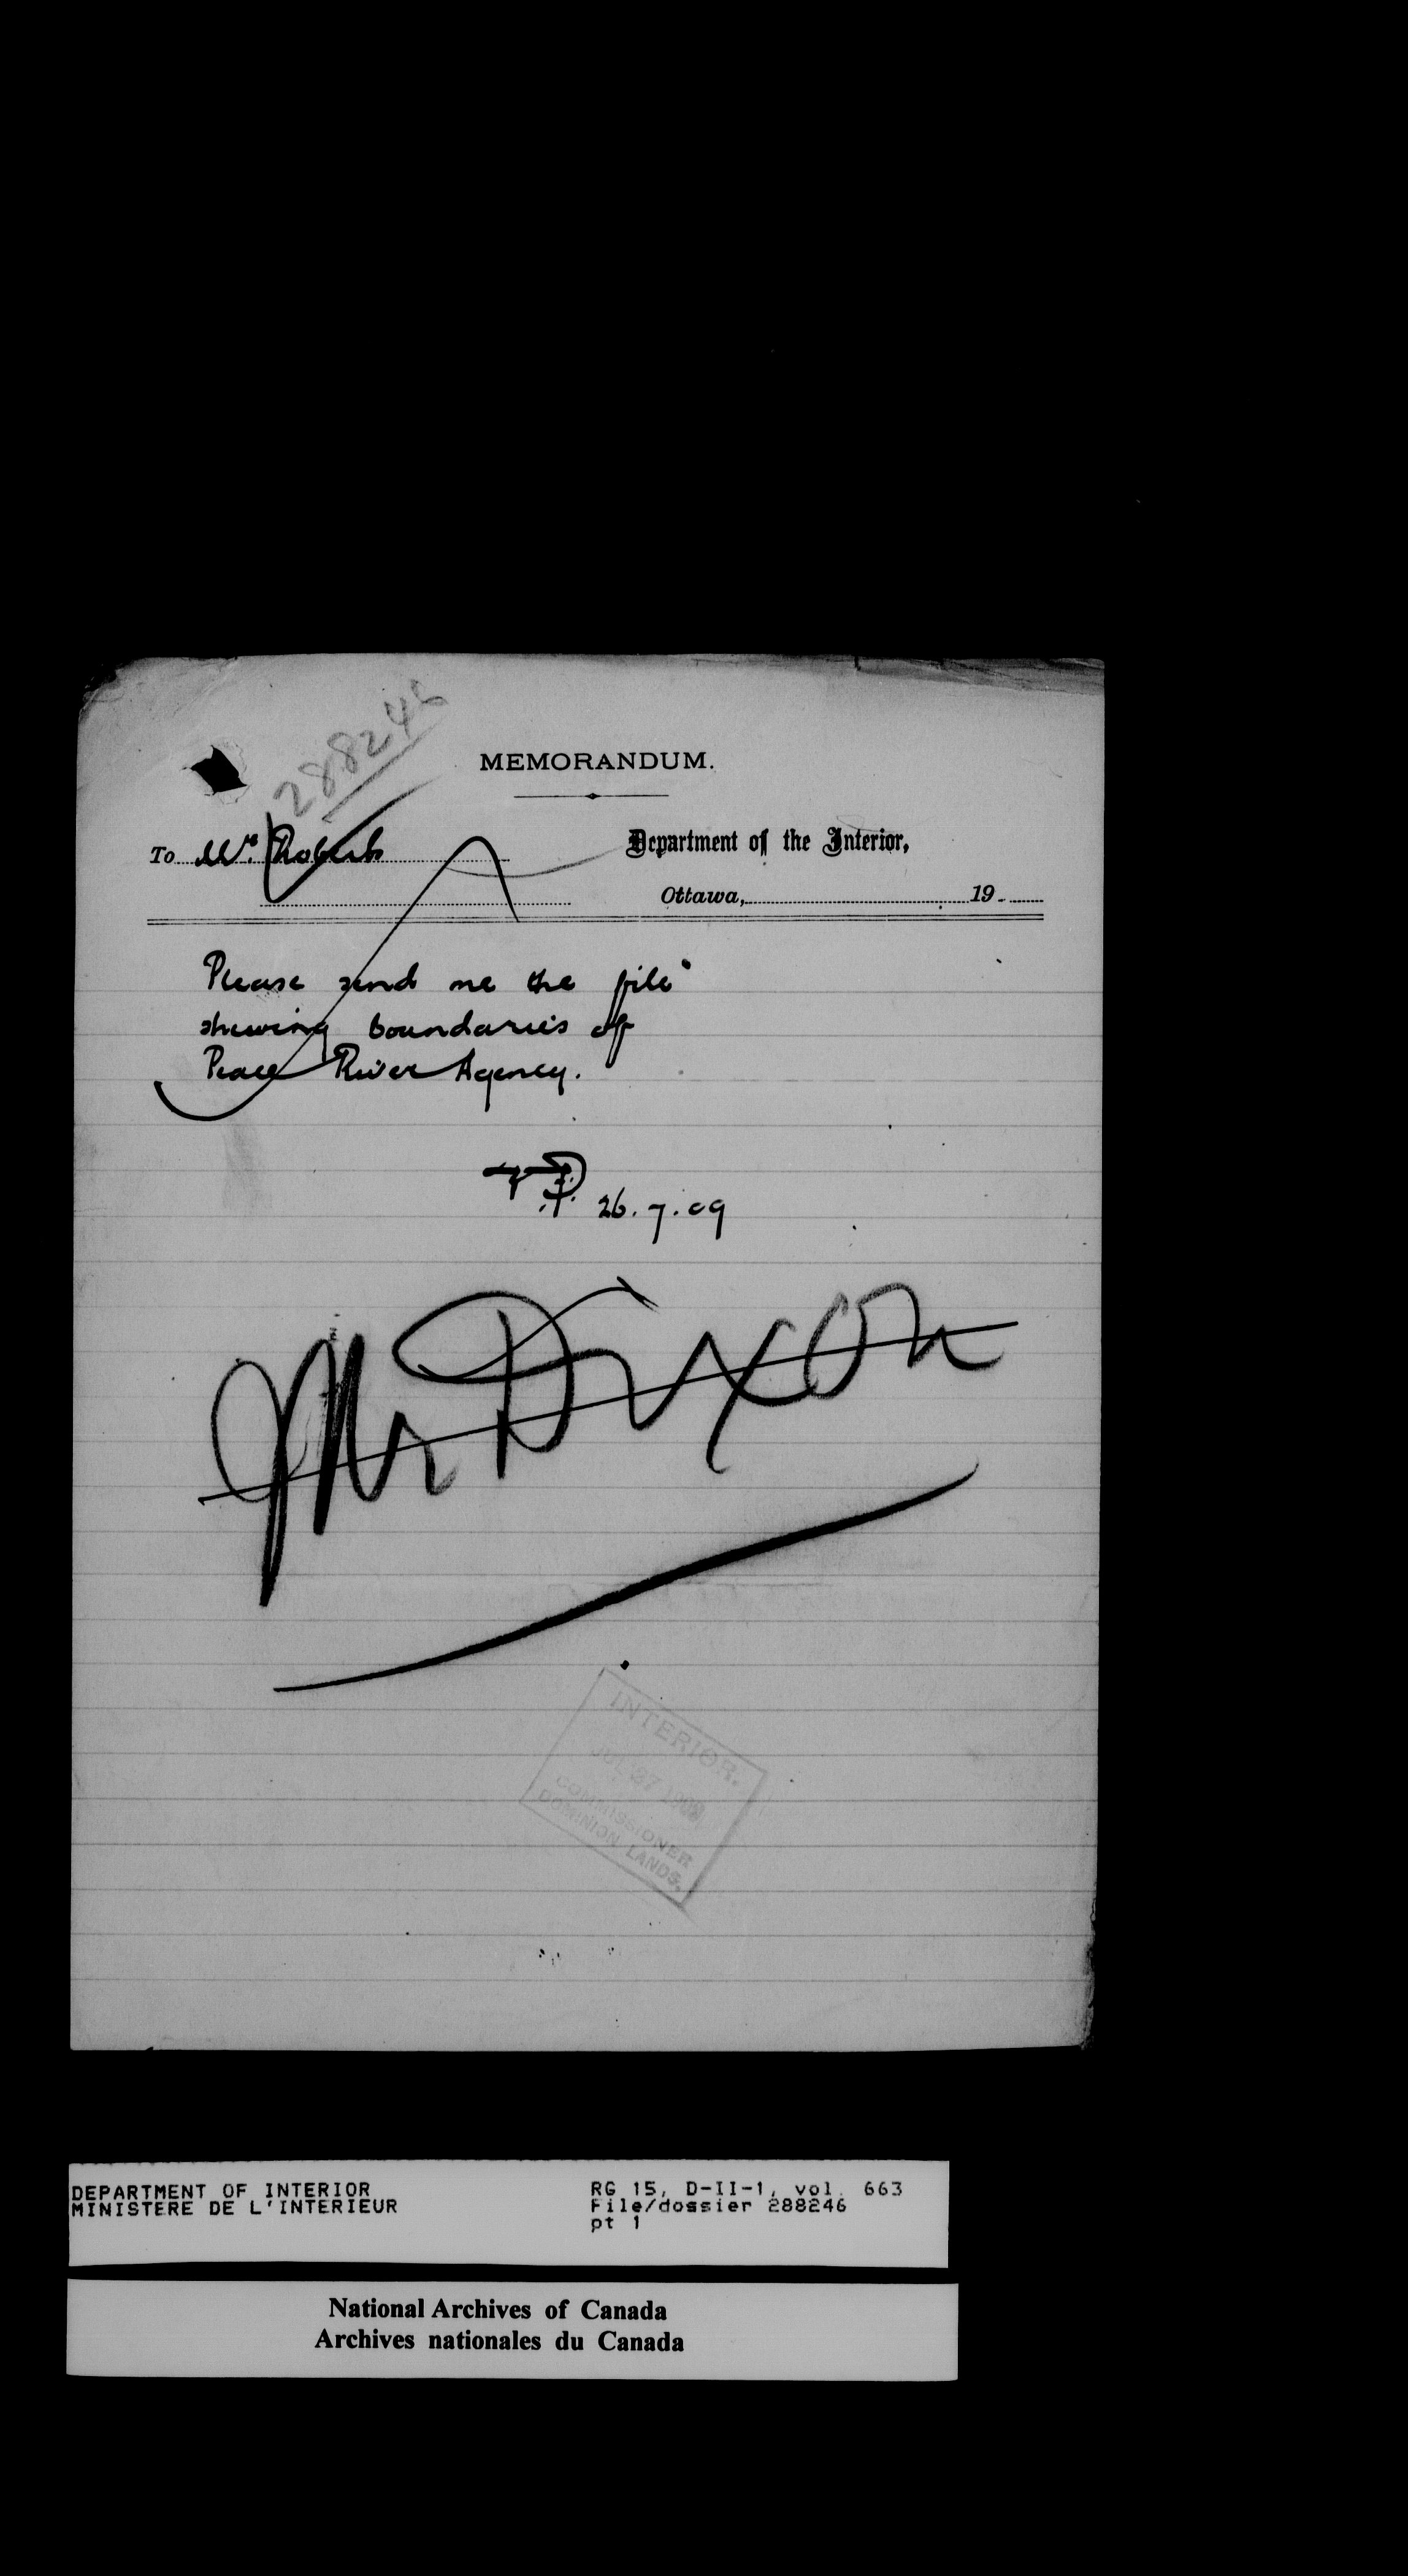 288246
MEMORANDUM.
To Mr. Roberts
Department of the Interior,
Ottawa, 19
Please send me the file
shewing boundaries of
Peace River Agency.
26.7.09
Mr Dixon
INTERIOR.
JUL 27 1909
COMMISSIONER
DOMINION LANDS.
DEPARTMENT OF INTERIOR
MINISTERE DE L'INTERIEUR
RG 15, D-II-1, vol. 663
File/dossier 288246
pt 1
National Archives of Canada
Archives nationales du Canada